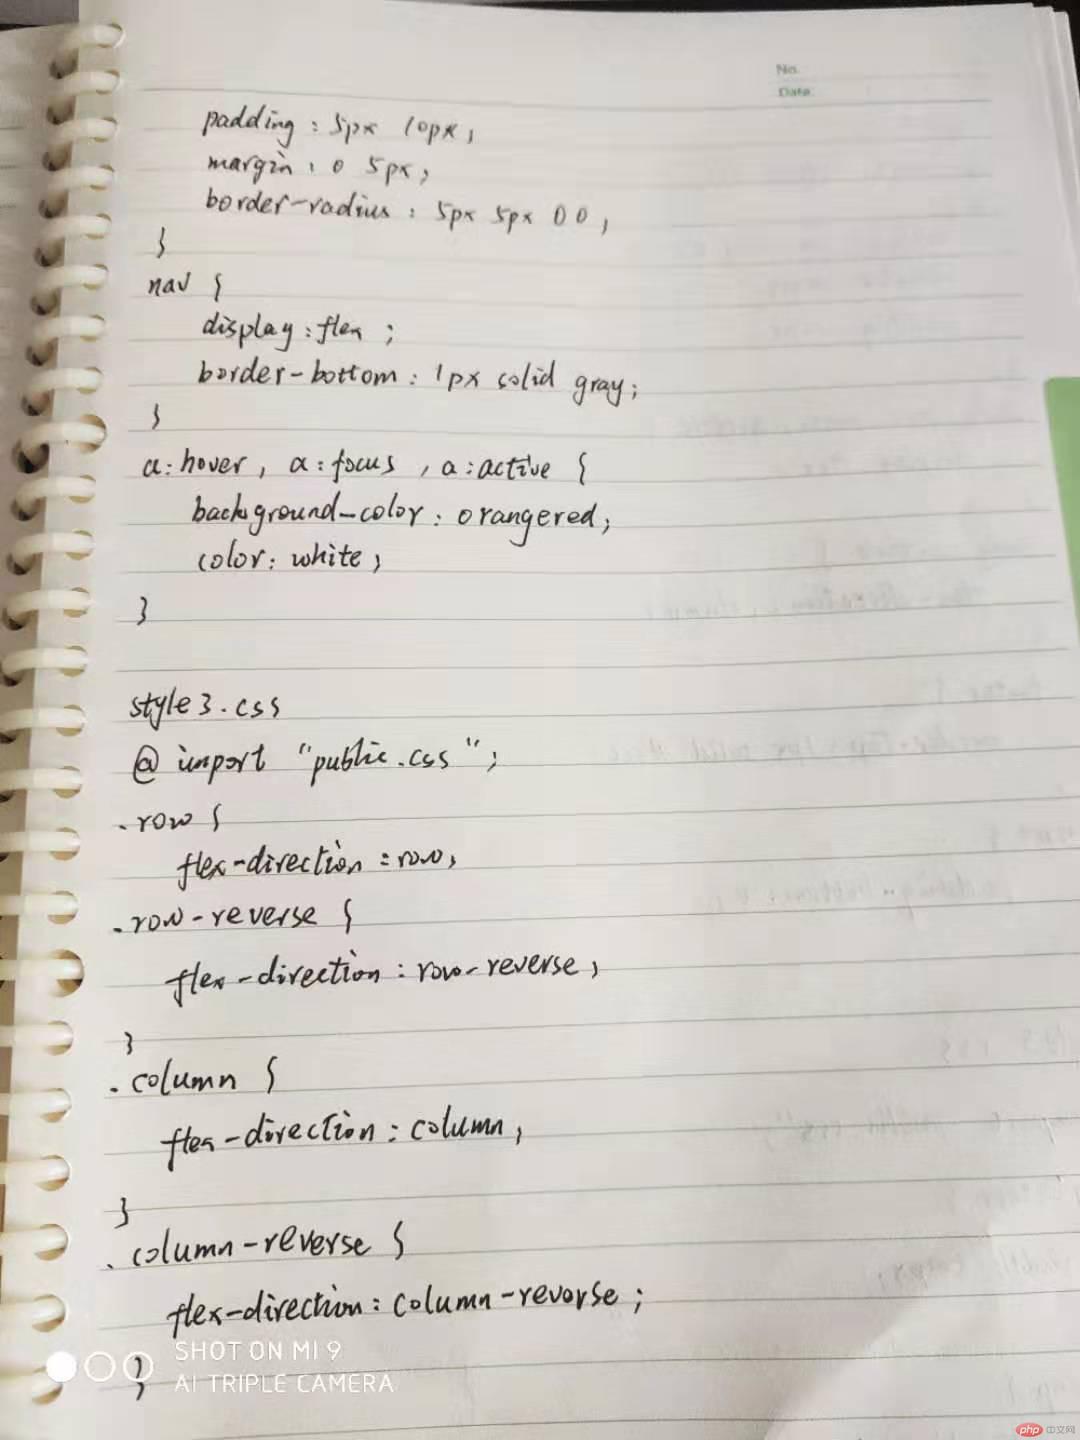 No.
Date.
padding : 5px 10px ;
margin : 0 5px ;
border-radius : 5px 5px 0 0 ;
}
nav {
display : flex ;
border-bottom : 1px solid gray ;
}
a:hover , a:focus , a:active {
background-color : orangered ;
color : white ;
}
style3.css
@ import "public.css" ;
.row {
flex-direction : row ;
.row-reverse {
flex-direction : row-reverse ;
}
.column {
flex-direction : column ;
}
.column-reverse {
flex-direction : column-reverse ;
}
SHOT ON MI 9
AI TRIPLE CAMERA
php 中文网